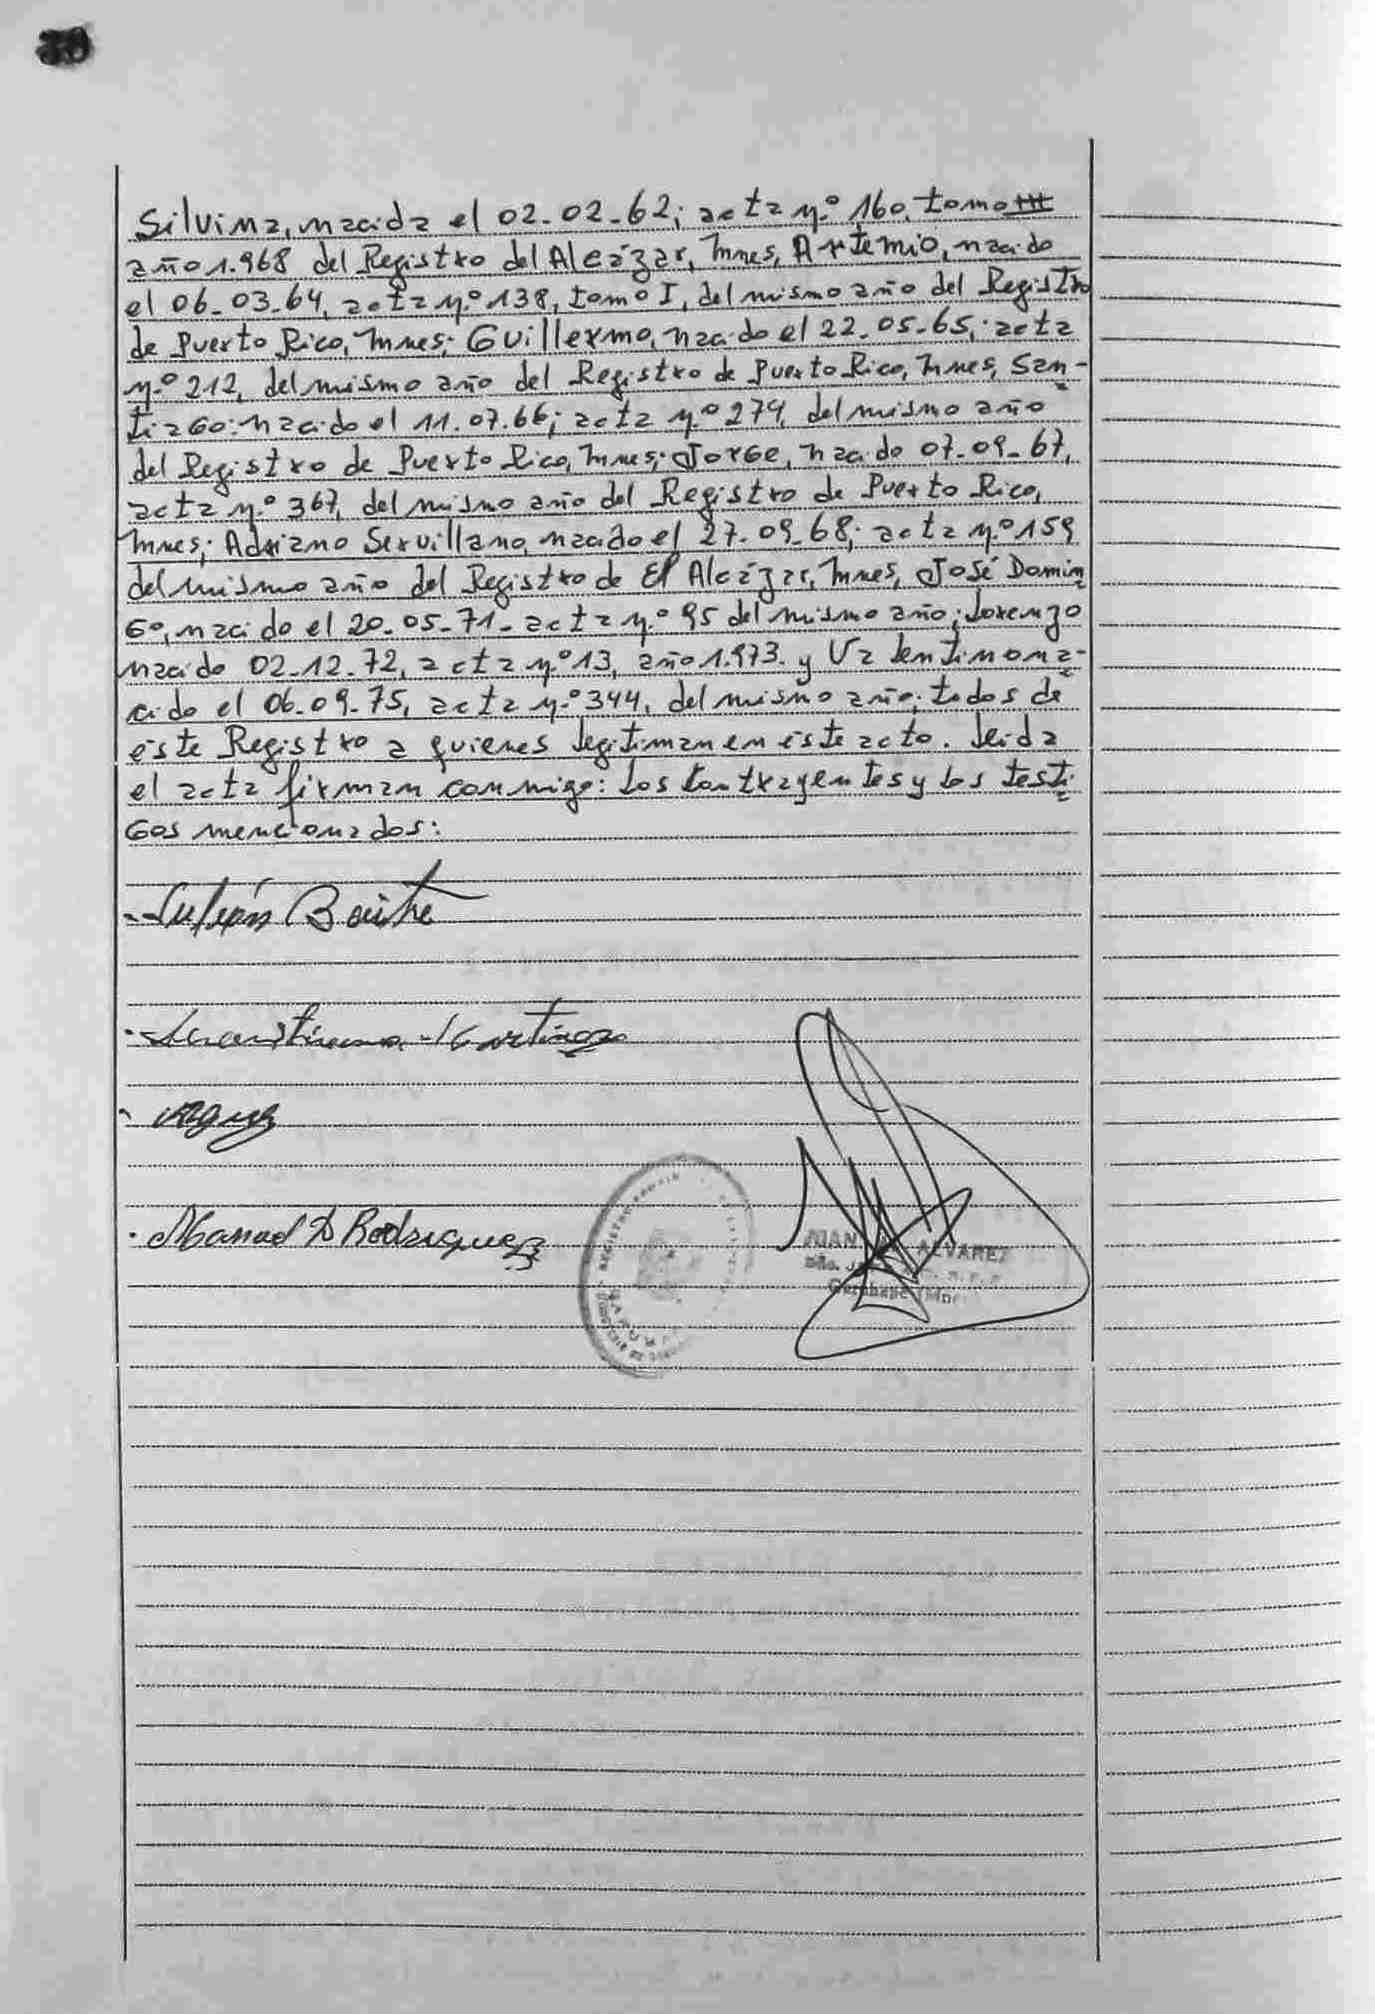 38
Silvina, nacida el 02-02-62; acta n.º 160, tomo III
año 1.968 del Registro del Alcázar, Mnes, Artemio, nacido
el 06-03-64, acta n.º 138, tomo I, del mismo año del Registro
de Puerto Rico, Mnes; Guillermo, nacido el 22-05-65; acta
n.º 212, del mismo año del Registro de Puerto Rico, Mnes, San-
tiago: nacido el 11.07.66; acta n.º 274, del mismo año
del Registro de Puerto Rico, Mnes; Jorge, nacido 07-09-67,
acta n.º 367, del mismo año del Registro de Puerto Rico,
Mnes; Adriano Servillano, nacido el 27-09-68; acta n.º 159
del mismo año del Registro de El Alcázar, Mnes, José Domin
go, nacido el 20-05-71- acta n.º 95 del mismo año; Lorenzo
nacido 02-12-72, acta n.º 13, año 1.973- y Valentino na-
cido el 06-09-75, acta n.º 344, del mismo año; todos de
éste Registro a quienes legitiman en éste acto. Leida
el acta firman conmigo: los contrayentes y los testi
gos mencionados:
Julián Benítez
Martínez
Manuel D Rodriguez
ALVAREZ